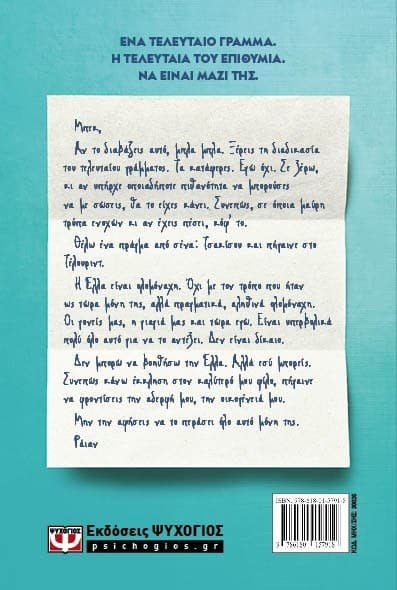 ΕΝΑ ΤΕΛΕΥΤΑΙΟ ΓΡΑΜΜΑ.
Η ΤΕΛΕΥΤΑΙΑ ΤΟΥ ΕΠΙΘΥΜΙΑ.
ΝΑ ΕΙΝΑΙ ΜΑΖΙ ΤΗΣ.
Μπεκ,
Αν το διαβάζεις αυτό, μπλα μπλα. Ξέρεις τη διαδικασία
του τελευταίου γράμματος. Τα κατάφερες. Εγώ όχι. Σε ξέρω,
κι αν υπήρχε οποιαδήποτε πιθανότητα να μπορούσες
να με σώσεις, θα το είχες κάνει. Συνεπώς, σε όποια μαύρη
τρύπα ενοχών κι αν έχεις πέσει, κόψ' το.
Θέλω ένα πράγμα από σένα: Τσακίσου και πήγαινε στο
Τέλουριντ.
Η Έλλα είναι ολομόναχη. Όχι με τον τρόπο που ήταν
ως τώρα μόνη της, αλλά πραγματικά, αληθινά ολομόναχη.
Οι γονείς μας, η γιαγιά μας και τώρα εγώ. Είναι υπερβολικά
πολύ όλο αυτό για να το αντέξει. Δεν είναι δίκαιο.
Δεν μπορώ να βοηθήσω την Έλλα. Αλλά εσύ μπορείς.
Συνεπώς κάνω έκκληση στον καλύτερό μου φίλο, πήγαινε
να φροντίσεις την αδερφή μου, την οικογένειά μου.
Μην την αφήσεις να το περάσει όλο αυτό μόνη της.
Ράιαν
ΨΥΧΟΓΙΟΣ
Εκδόσεις ΨΥΧΟΓΙΟΣ
psichogios.gr